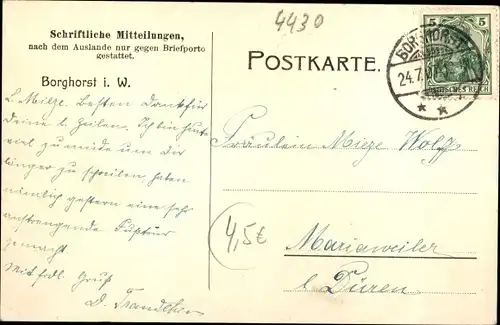 4430
Schriftliche Mitteilungen,
nach dem Auslande nur gegen Briefporto
gestattet.
POSTKARTE.
BORGHORST
24.7.0
5 5
DEUTSCHES REICH
Borghorst i. W.
L. Mieze. Besten Dank für
Deine l. Zeilen. Ich bin heute
viel zu müde um Dir
länger zu schreiben, haben
nämlich gestern eine sehr
anstrengende
gemacht
Mit frdl. Gruß
D.
Fräulein Mieze Wolff
4,5€
Mariaweiler
b. Düren